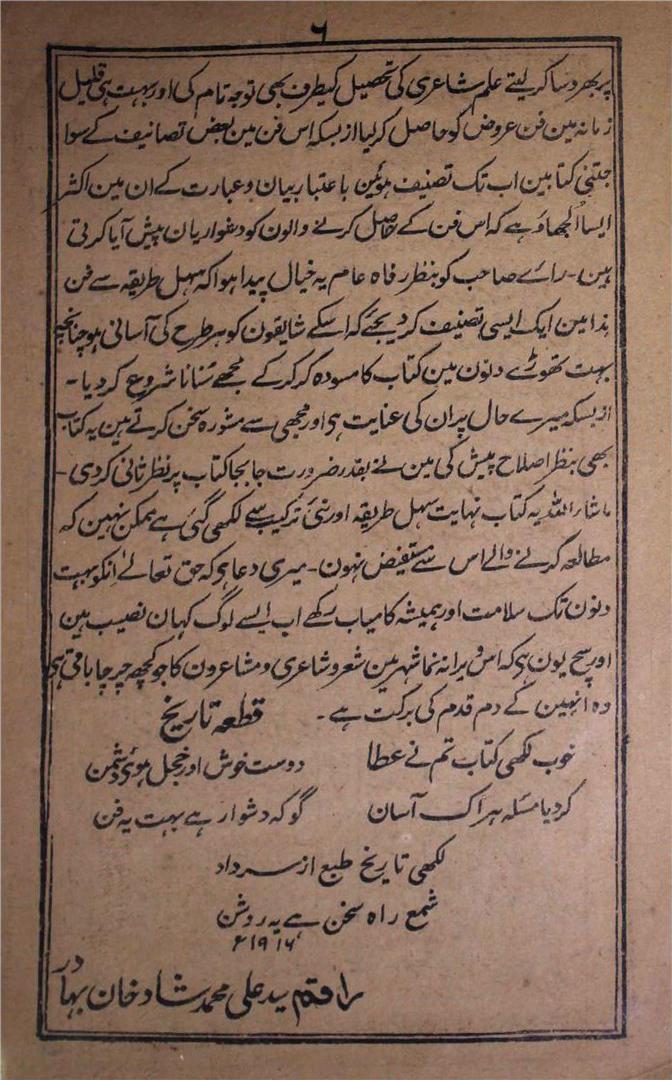 ۶
پر بھروسا کر لیتے علم شاعری کی تحصیل کیطرف بھی توجہ تام کی اور بہت ہی قلیل
زمانہ مین فن عروض کو حاصل کر لیا ازبسکہ اس فن مین بعض تصانیف کے سوا
جتنی کتابین اب تک تصنیف ہوئین باعتبار بیان و عبارت کے ان مین اکثر
ایسا الجھاؤ ہے کہ اس فن کے حاصل کرنے والون کو دشواریان پیش آیا کرتی
ہین۔ رائے صاحب کو بنظر رفاہ عام یہ خیال پیدا ہوا کہ سہل طریقہ سے فن
ہذا مین ایک ایسی تصنیف کر دیجئے کہ اسکے شایقون کو ہر طرح کی آسانی ہو چنانچہ
بہت تھوڑے دنون مین کتاب کا مسودہ کر کر کے مجھے سُنانا شروع کر دیا۔
ازبسکہ میرے حال پر ان کی عنایت ہی اور مجھی سے مشورہ سخن کرتے ہین یہ کتاب
بھی بنظر اصلاح پیش کی مین نے بقدر ضرورت جابجا کتاب پر نظر ثانی کر دی۔
ماشاء اللہ یہ کتاب نہایت سہل طریقہ اور نئی ترکیب سے لکھی گئی ہے ممکن نہین کہ
مطالعہ کرنے والے اس سے مستفیض نہون۔ میری دعا ہی کہ حق تعالےٰ انکو بہت
دنون تک سلامت اور ہمیشہ کامیاب رکھے اب ایسے لوگ کہان نصیب ہین
اور سچ یون ہی کہ اس ویرانہ نما شہر مین شعر و شاعری و مشاعرون کا جو کچھ چرچا باقی ہی
وہ انہین کے دم قدم کی برکت ہے۔ قطعہ تاریخ
خوب لکھی کتاب تم نے عطا دوست خوش اور خجل ہوئے دشمن
کر دیا مسئلہ ہر اک آسان گو کہ دشوار ہے بہت یہ فن
لکھی تاریخ طبع از سر داد
شمع راہ سخن ہے یہ روشن
۱۹۱۶ء
راقم سید علی محمد شاد خان بہادر